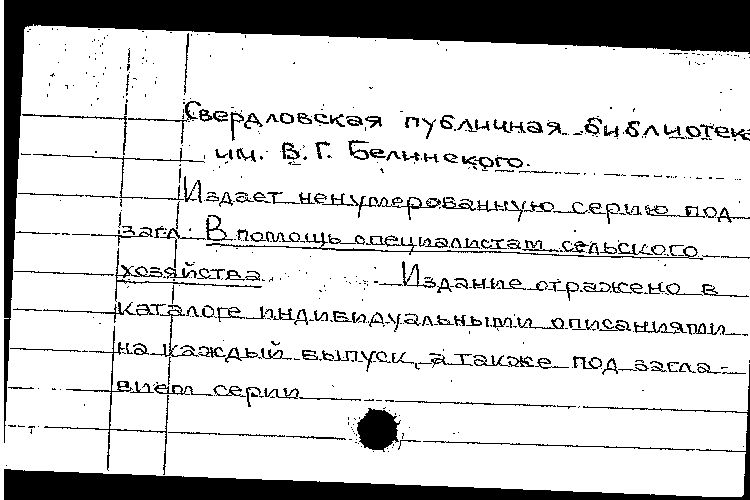 Свердловская публичная библиотека
им. В.Г. Белинского.
Издает ненумерованную серию под
загл. В помощь специалистам сельского
хозяйства. Издание отражено в
каталоге индивидуальными описаниями
на каждый выпуск, а также под загла-
вием серии